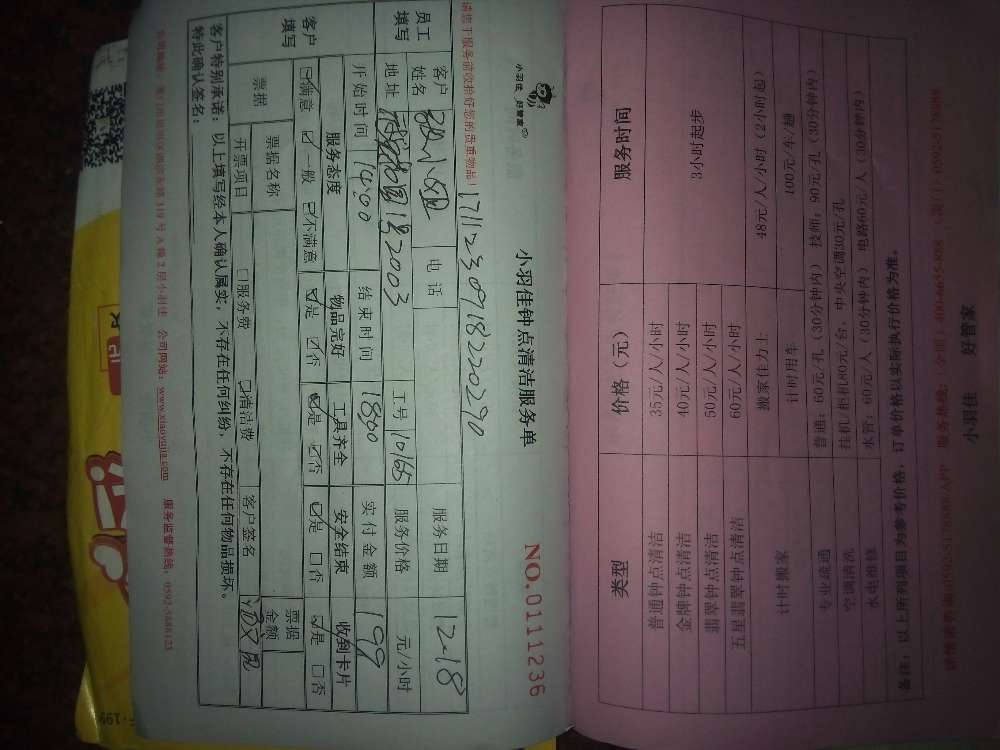 小羽佳 好管家
小羽佳钟点清洁服务单
NO.0111236
请您于服务前收拾好您的贵重物品！
17112309182220290
员工填写
客户姓名
电话
服务日期
12-18
地址
2003
工号
10165
服务价格
元/小时
开始时间
1400
结束时间
1800
实付金额
199
客户填写
服务态度
物品完好
工具齐全
安全结束
收到卡片
满意 一般 不满意
是 否
是 否
是 否
是 否
票据
票据名称
客户签名
票据金额
开票项目
服务费
清洁费
客户特别承诺：以上填写经本人确认属实，不存在任何纠纷，不存在任何物品损坏。
特此确认签名：
公司网站：www.xiaoyujia.com 服务监督热线：0592-5888123
类型 价格（元） 服务时间
普通钟点清洁 35元/人/小时 3小时起步
金牌钟点清洁 40元/人/小时
翡翠钟点清洁 50元/人/小时
五星翡翠钟点清洁 60元/人/小时
计时搬家 搬家佳力士 48元/人/小时（2小时起）
计时用车 100元/车/趟
专业疏通 普通：60元/孔（30分钟内） 技师：90元/孔（30分钟内）
空调清洗 挂机/柜机80元/台，中央空调30元/孔
水电维修 水管：60元/人（30分钟内） 电路60元/人（30分钟内）
备注：以上所列项目为参考价格，订单价格以实际执行价格为准。
小羽佳 好管家